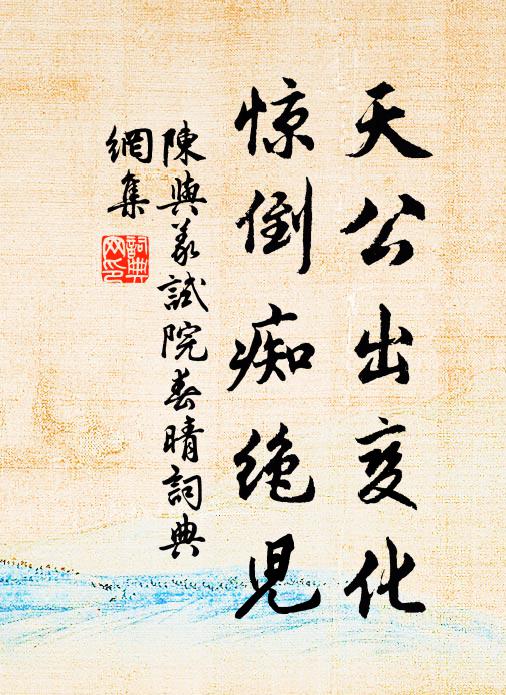 天公出变化
惊倒痴绝児
陳與義試院春晴詞典
網集
詞典网印